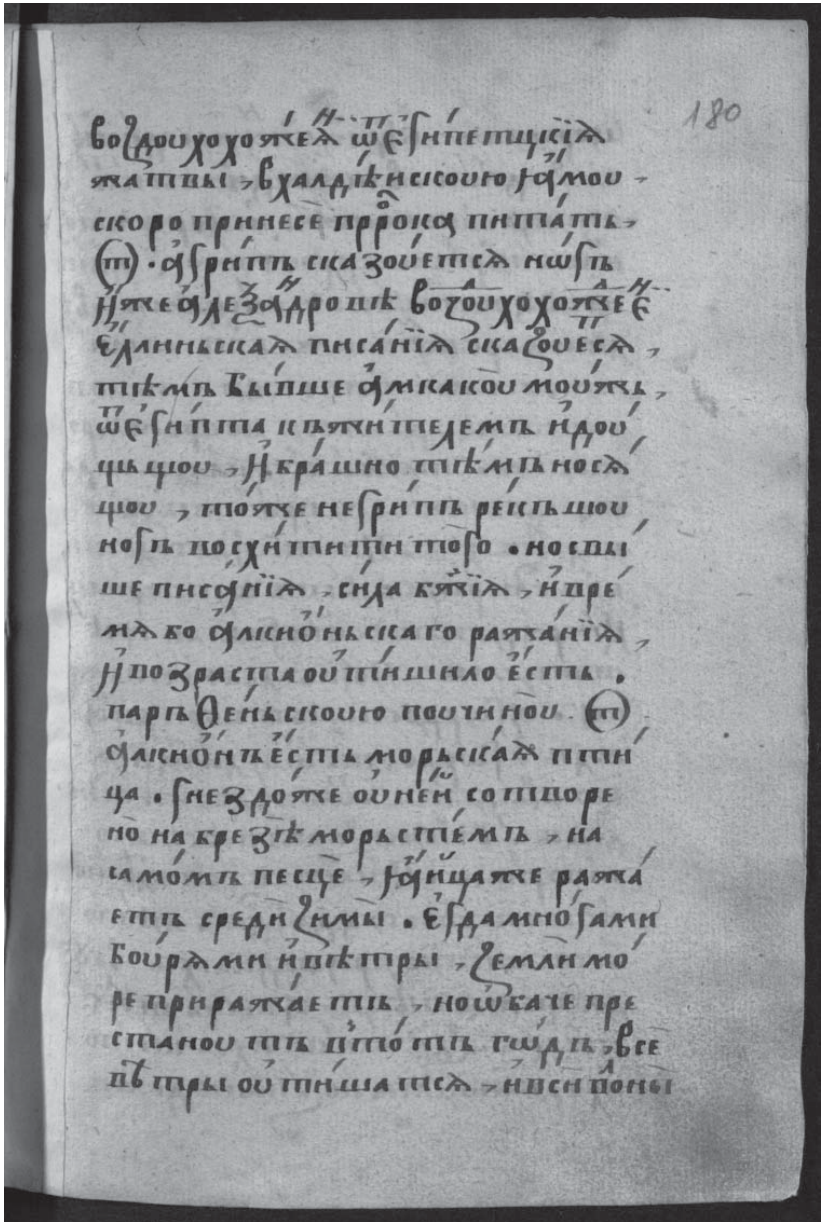 180
воздоухохоже́нїѧ ѿ є҆гѝпетцкїѧ
жатвы , в халдѣ́искоую ꙗ҆́моу ,
скоро принесѐ прⷪ҇рока пита́ть ,
т . а҆грѝпъ сказоуется нѡгъ
и҆́же а҆леза́ⷩдровѣ воздоухохоⷤе́нїе
є҆́ллиньскаѧ писа́нїѧ сказоуеⷮсѧ ,
тѣмъ бы́вше а҆мкакоу моужь ,
ѿ є҆гѝпта къ жи́телемъ и҆доу́
щьшоу , и҆ бра́шно тѣ́мъ носѧ́
щоу , то́же не грѝпъ ре́къшоу
ногъ восхи́тити того . но свы́
ше писа́нїѧ , си́ла бж҃їѧ , и҆ вре́
мѧ бо а҆лкио́ньскаго ража́нїѧ ,
и҆ возраста оу҆ти́шило є҆́сть .
парѳе́ньскоую поучи́ноу . т
а҆лкио́нъ є҆́сть морьска́ѧ пти́
ца . гнездо́же оу҆ не́й сотворе
но̀ на брезѣ морьсте́мъ , на
само́мъ песцѐ , ꙗ҆и́цаже ража́
етъ средѝ зимы̀ . є҆гда мно́гами
боу́рѧми и҆ вѣтры , землѝ мо́
ре приража́етъ , но ѡ҆баче пре
станоутъ в то́тъ го́дъ , все
вѣтры оу҆тиша́тсѧ , и҆ вси во́лны